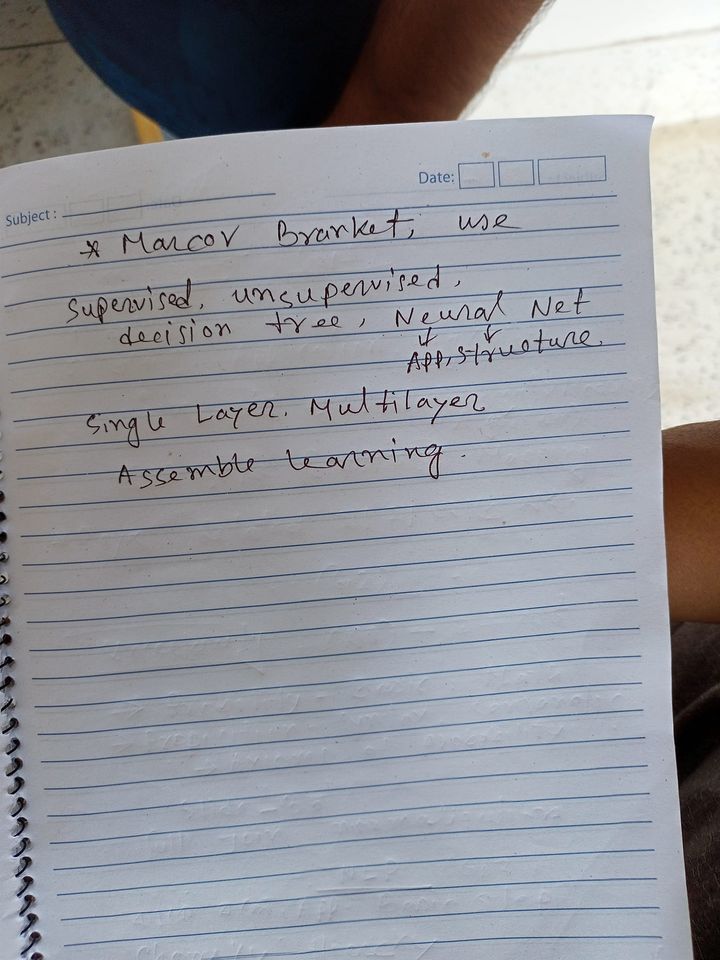 Date:
Subject :
* Marcov Branket, use
Supervised, unsupervised,
decision tree, Neural Net
App, structure.
Single Layer. Multilayer
Assemble learning.